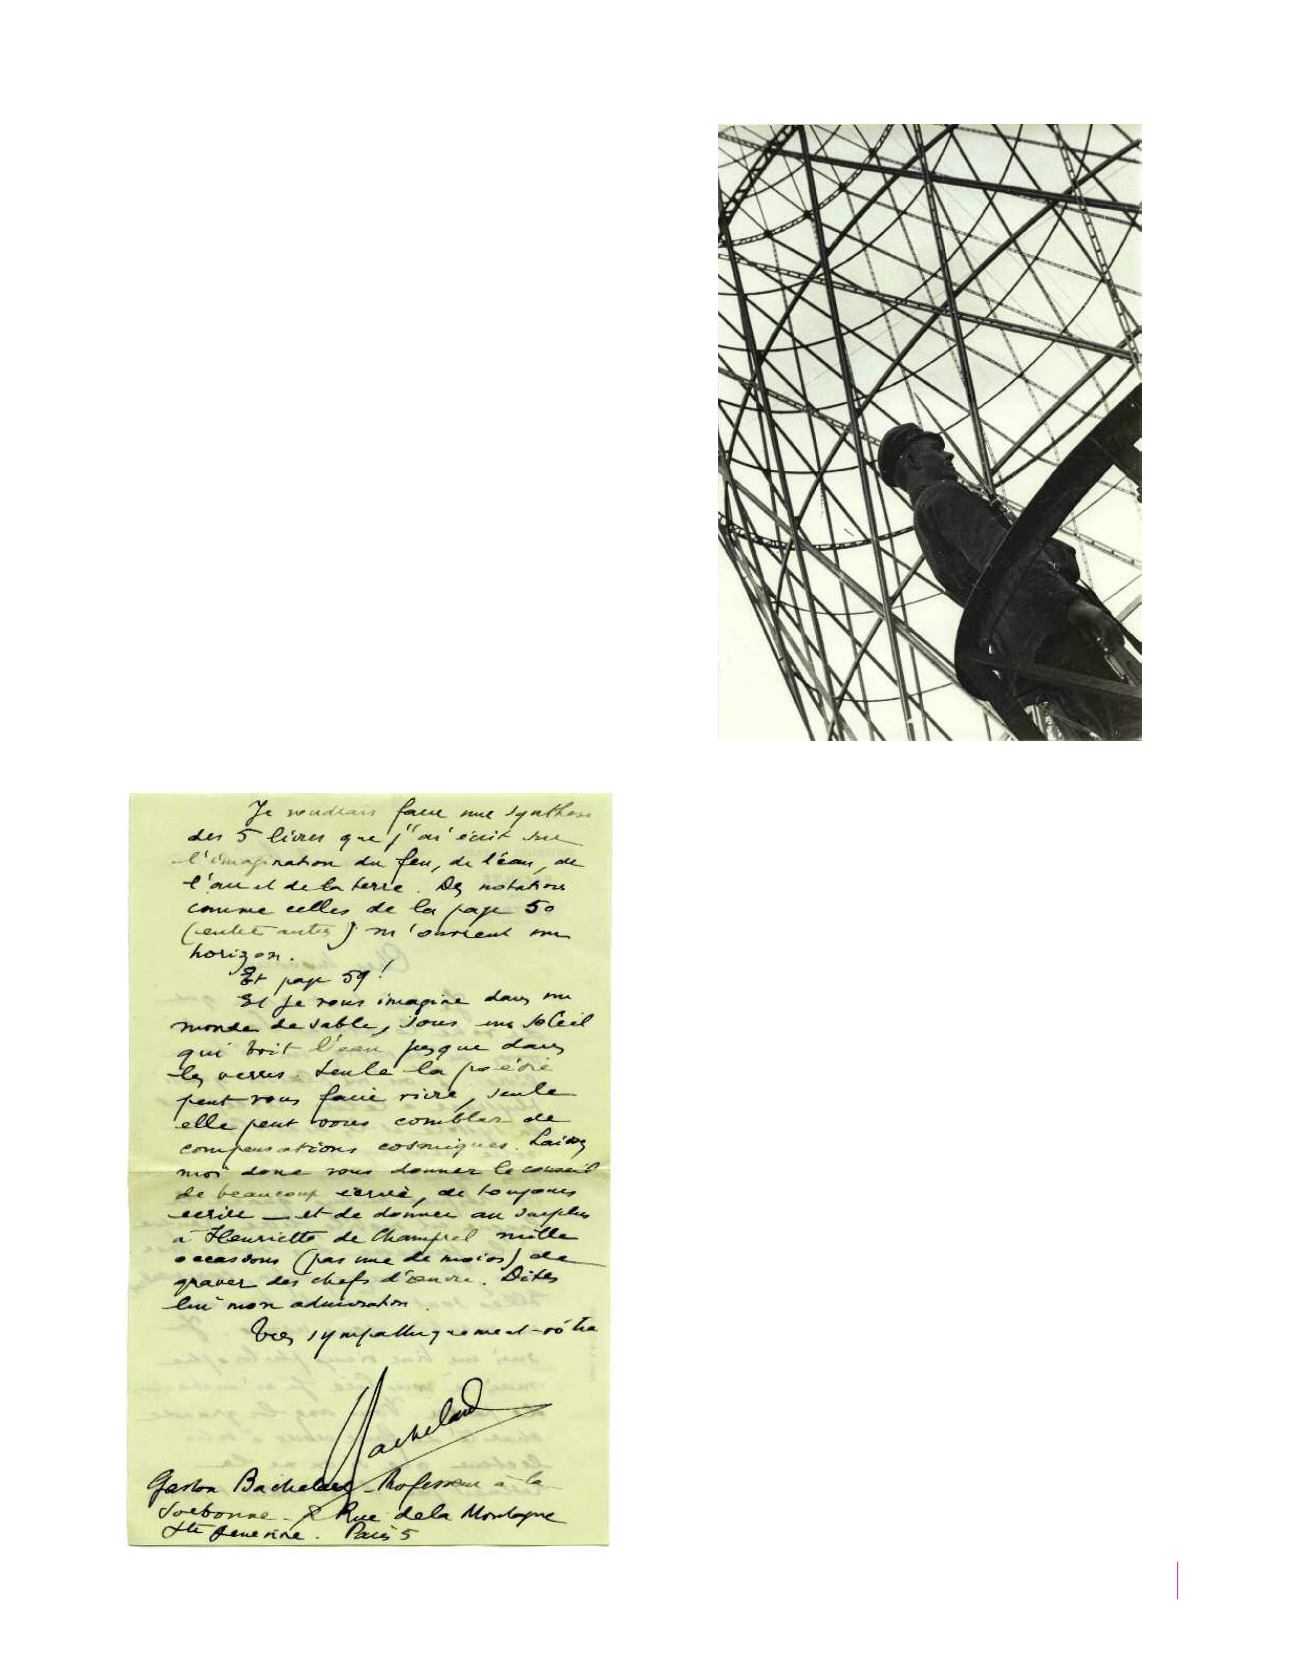 Je voudrais faire une synthèse
des 5 livres que j'ai écrit sur
l'imagination du feu, de l'eau, de
l'air et de la terre. Des notations
comme celles de la page 50
(entre autres) m'ouvrent un
horizon.
Et page 59!
Et je vous imagine dans un
monde de sable, sous un soleil
qui boit l'eau jusque dans
les verres. Seule la poésie
peut vous faire vivre, seule
elle peut vous combler de
compensations cosmiques. Laissez
moi donc vous donner le conseil
de beaucoup écrire, de toujours
écrire — et de donner au surplus
à Henriette de Champrel mille
occasions (pas une de moins) de
graver des chefs d'œuvre. Dites
lui mon admiration.
Très sympathiquement vôtre
Bachelard
Gaston Bachelard Professeur à la
Sorbonne. 2 Rue de la Montagne
Ste Geneviève. Paris 5